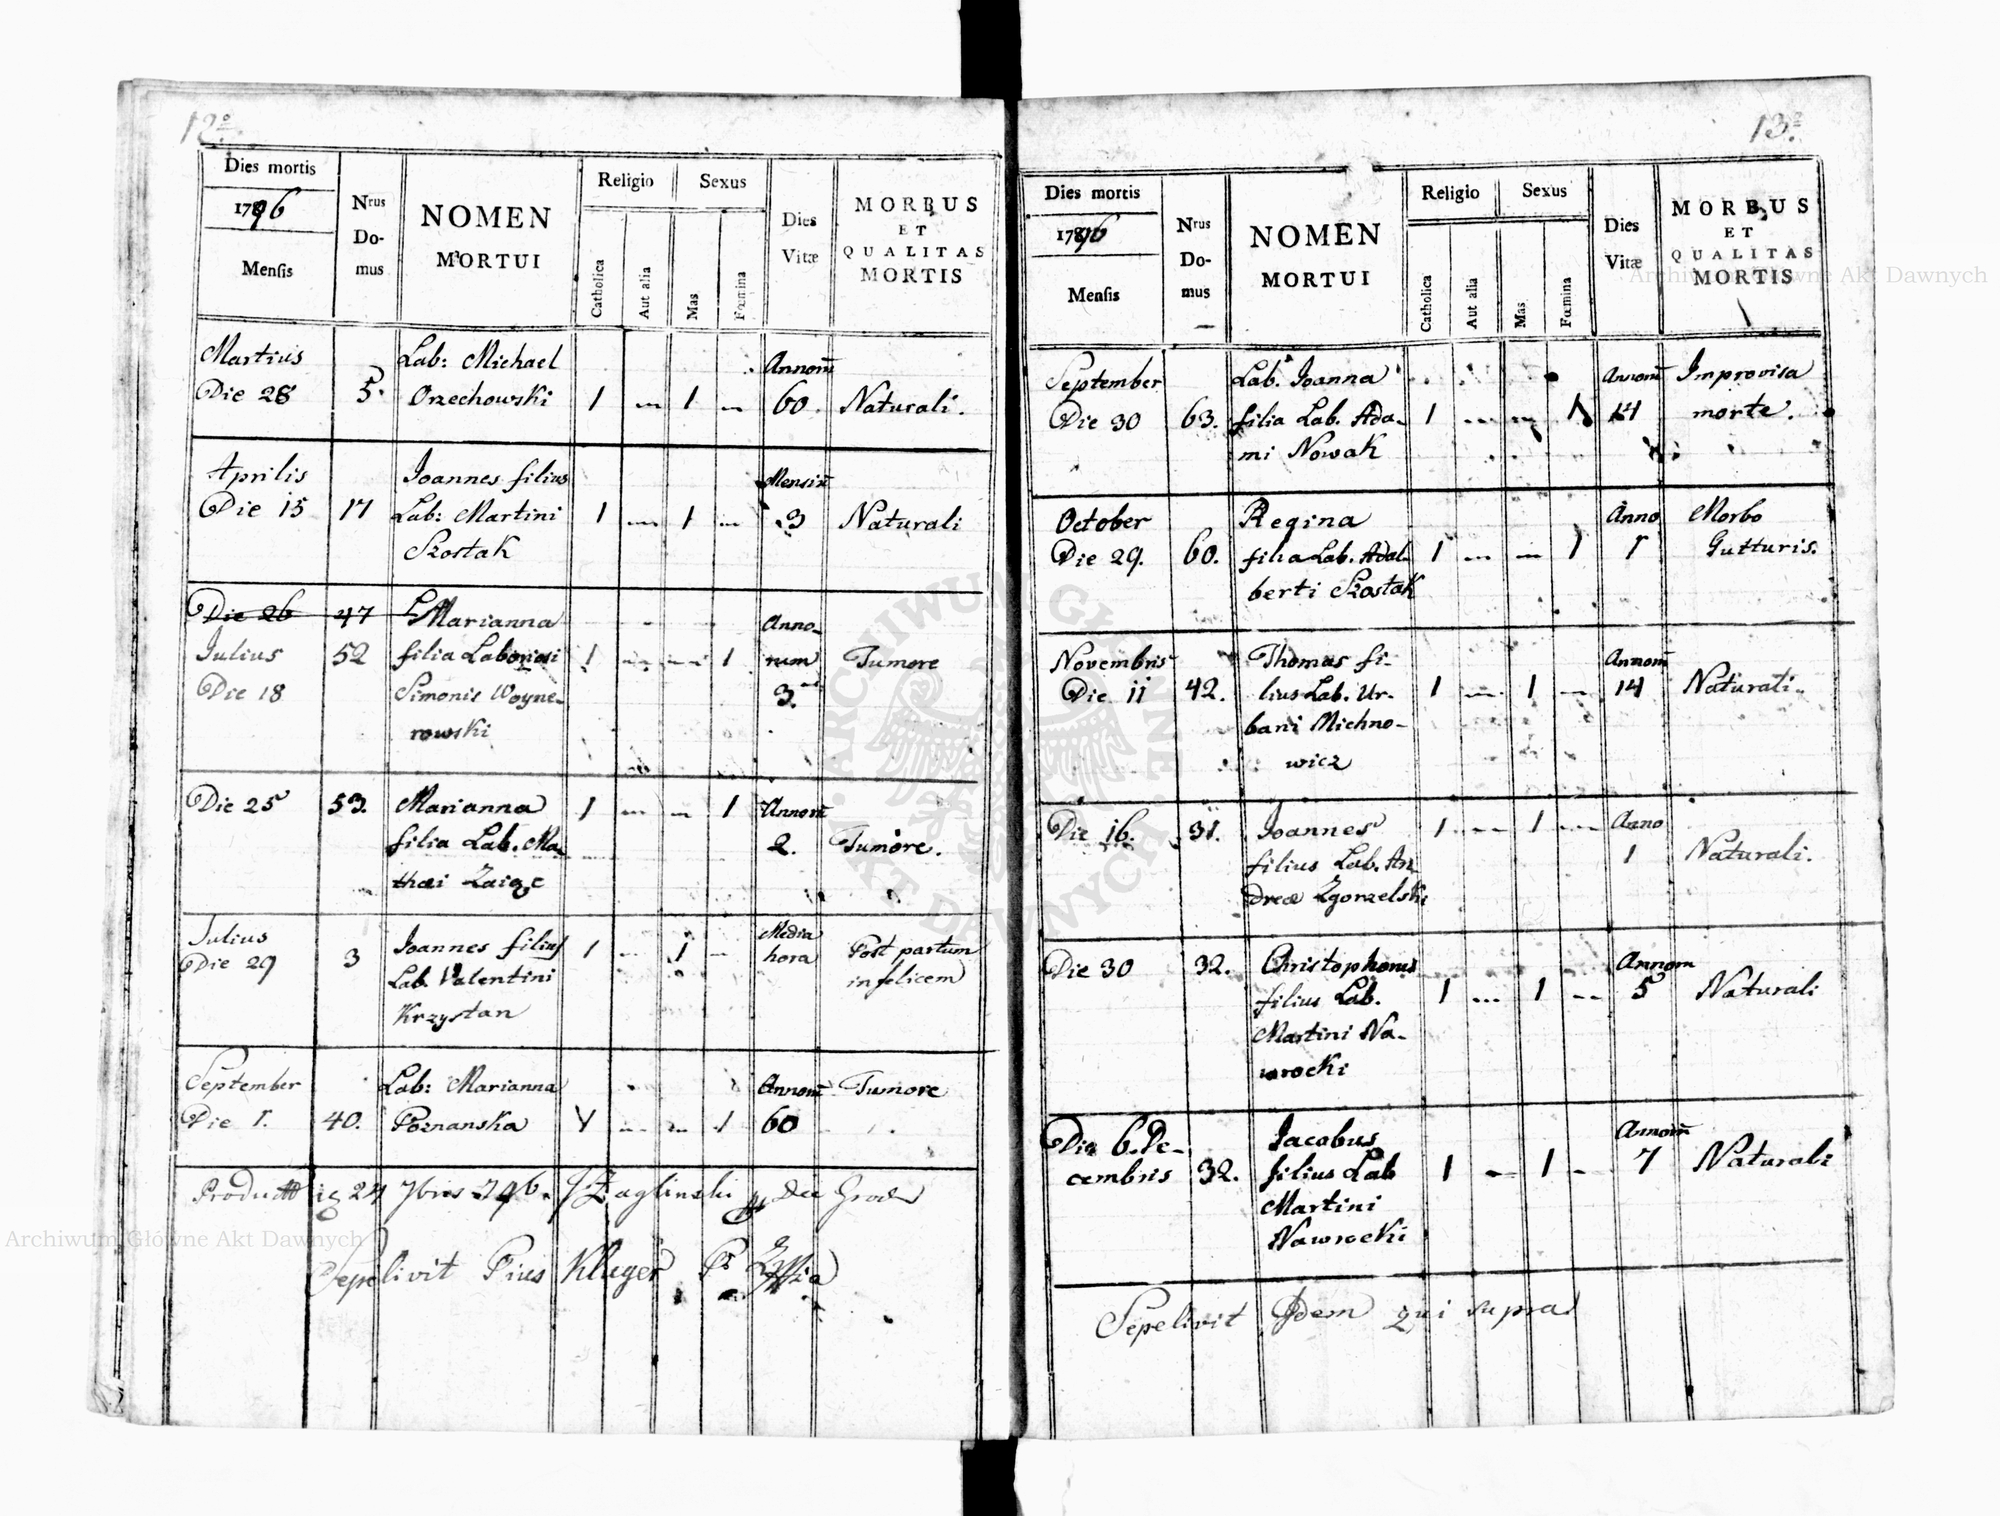 12º
Dies mortis
1796
Mensis
Nrus Do-mus
NOMEN
MORTUI
Religio
Catholica
Aut alia
Sexus
Mas
Fœmina
Dies
Vitæ
MORBUS
ET
QUALITAS
MORTIS
Martius
Die 28
5.
Lab: Michael
Orzechowski
1 — 1 —
Annorũ
60.
Naturali.
Aprilis
Die 15
17
Joannes filius
Lab: Martini
Szostak
1 — 1 —
Mensiũ
3
Naturali
Die 26 47
Julius
Die 18
52
Marianna
filia Laboriosi
Simonis Woyne-
rowski
1 — — 1
Anno-
rum
3.
Tumore
Die 25
53.
Marianna
filia Lab. Ma-
thæi Zaięc
1 — — 1
Annorũ
2.
Tumore.
Julius
Die 29
3
Joannes filius
Lab. Valentini
Krzystan
1 — 1 —
Media
hora
Post partum
infelicem
September
Die 1.
40.
Lab: Marianna
Poznanska
1 — — 1
Annorũ
60
Tumore
27 7bris 796.
Sepelivit Pius Kluger
13º
Dies mortis
1796
Mensis
Nrus Do-mus
NOMEN
MORTUI
Religio
Catholica
Aut alia
Sexus
Mas
Fœmina
Dies
Vitæ
MORBUS
ET
QUALITAS
MORTIS
September
Die 30
63.
Lab. Joanna
filia Lab. Ada-
mi Nowak
1 — — 1
Annorũ
14
Improvisa
morte.
October
Die 29.
60.
Regina
filia Lab. Adal-
berti Szostak
1 — — 1
Anno
1
Morbo
Gutturis.
Novembris
Die 11
42.
Thomas fi-
lius Lab. Ur-
bani Michno-
wicz
1 — 1 —
Annorũ
14
Naturali.
Die 16.
31.
Joannes
filius Lab. An-
dreæ Zgorzelski
1 — 1 —
Anno
1
Naturali.
Die 30
32.
Christophorus
filius Lab.
Martini Na-
wrocki
1 — 1 —
Annorum
5
Naturali
Die 6. De-
cembris
32.
Jacobus
filius Lab
Martini
Nawrocki
1 — 1 —
Annorũ
7
Naturali
Sepelivit Idem qui supra
Archiwum Główne Akt Dawnych
Archiwum Główne Akt Dawnych
ARCHIWUM GŁÓWNE AKT DAWNYCH